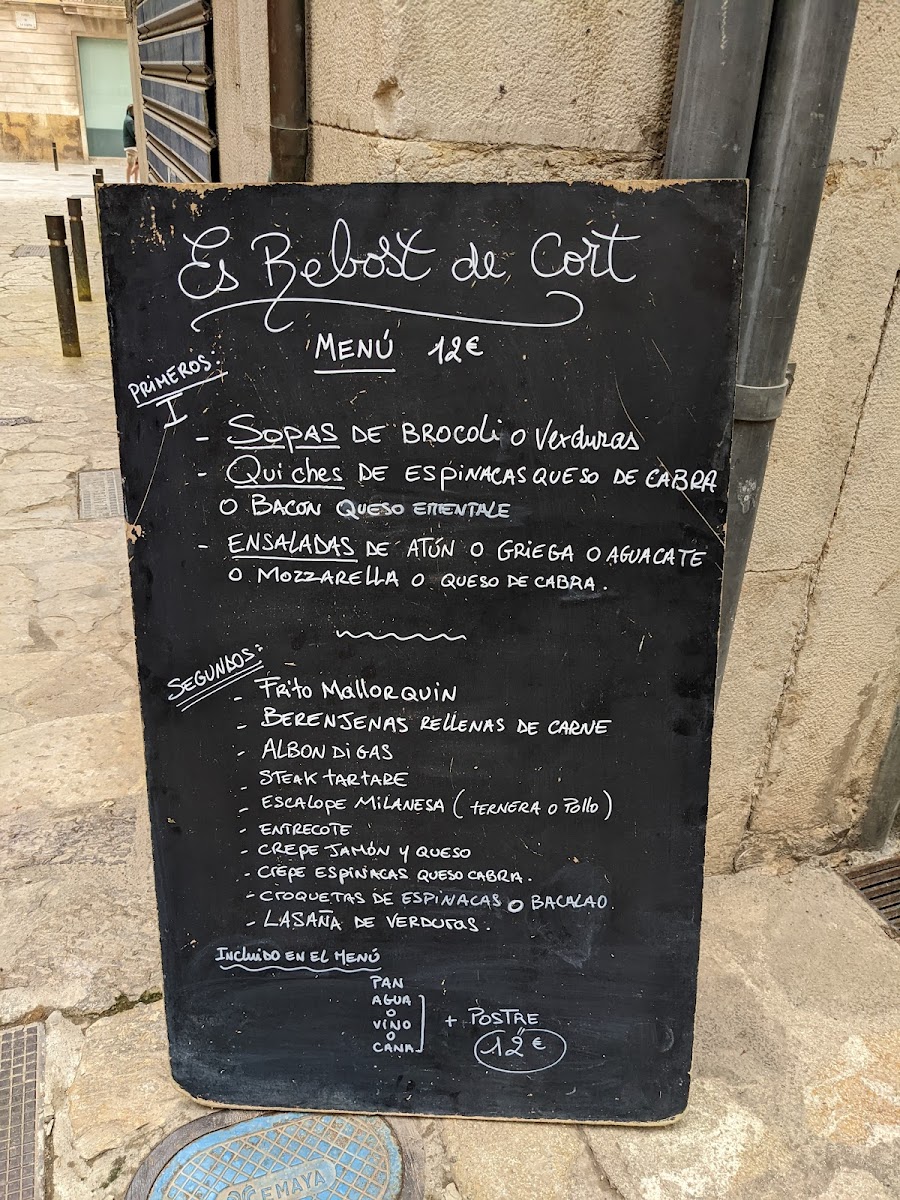 Es Rebost de Cort
MENÚ 12€
PRIMEROS:
I
- SOPAS DE BROCOLI O Verduras
- QUICHES DE ESPINACAS QUESO DE CABRA
O BACON QUESO EMENTALE
- ENSALADAS DE ATÚN O GRIEGA O AGUACATE
O MOZZARELLA O QUESO DE CABRA.
SEGUNDOS:
- FRITO MALLORQUIN
- BERENJENAS RELLENAS DE CARNE
- ALBONDIGAS
- STEAK TARTARE
- ESCALOPE MILANESA (TERNERA O POLLO)
- ENTRECOTE
- CREPE JAMÓN Y QUESO
- CREPE ESPINACAS QUESO CABRA.
- CROQUETAS DE ESPINACAS O BACALAO.
- LASAÑA DE VERDURAS.
INCLUIDO EN EL MENÚ
PAN
AGUA
O
VINO
O
CANA
+ POSTRE
12€
EMAYA